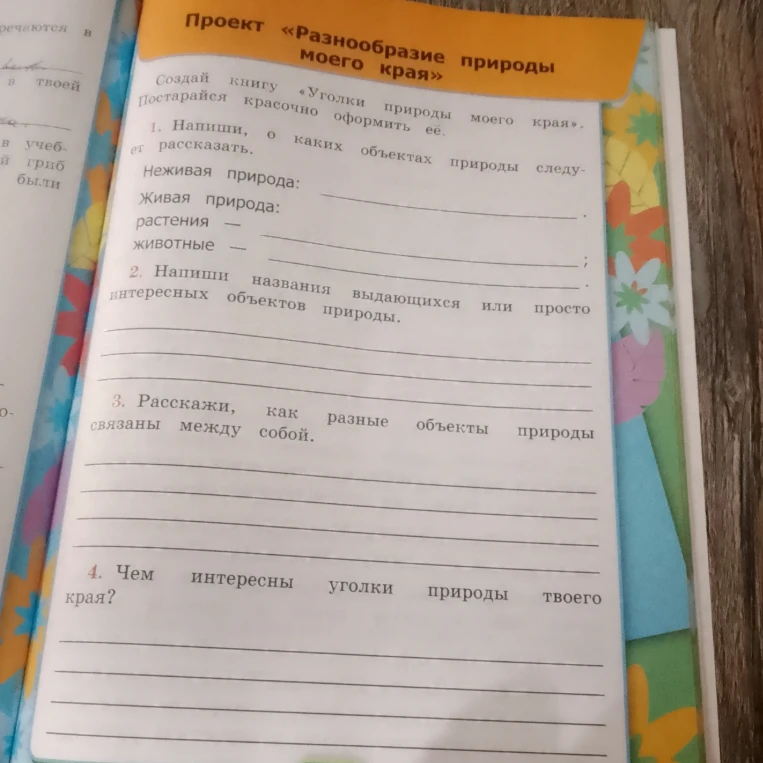 речаются в
в твоей
в учеб-
й гриб
были
Проект «Разнообразие природы
моего края»
Создай книгу «Уголки природы моего края».
Постарайся красочно оформить её.
1. Напиши, о каких объектах природы следу-
ет рассказать.
Неживая природа: .
Живая природа:
растения — ;
животные — .
2. Напиши названия выдающихся или просто
интересных объектов природы.
3. Расскажи, как разные объекты природы
связаны между собой.
4. Чем интересны уголки природы твоего
края?